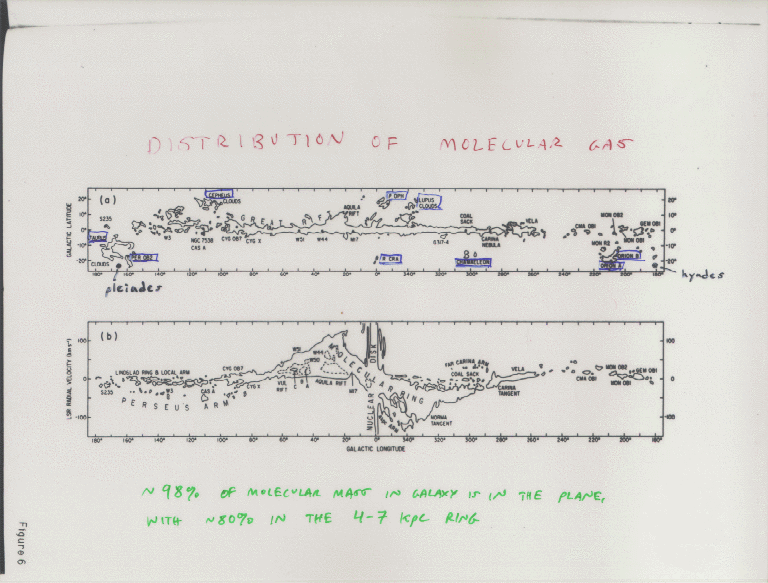 DISTRIBUTION OF MOLECULAR GAS
(a)
GALACTIC LATITUDE
20°
10°
0°
-10°
-20°
S235
TAURUS
CLOUDS
PER OB2
W3
CEPHEUS
CLOUDS
NGC 7538
CAS A
CYG OB7
CYG X
GREAT RIFT
W51
W44
AQUILA
RIFT
M17
P OPH
LUPUS
CLOUDS
R CRA
G317-4
COAL
SACK
CARINA
NEBULA
VELA
CMA OB1
MON R2
MON OB2
MON OB1
GEM OB1
ORION B
ORION A
20°
10°
0°
-10°
-20°
180° 160° 140° 120° 100° 80° 60° 40° 20° 0° 340° 320° 300° 280° 260° 240° 220° 200° 180°
pleiades
hyades
(b)
LSR RADIAL VELOCITY (km s⁻¹)
+100
0
-100
LINDBLAD RING & LOCAL ARM
S235
PERSEUS ARM
CAS A
CYG OB7
CYG X
W51
W44
W50
VUL
RIFT
AQUILA RIFT
M17
MOLECULAR RING
NUCLEAR DISK
NORMA
TANGENT
FAR CARINA ARM
COAL SACK
CARINA
TANGENT
VELA
CMA OB1
MON OB2
MON OB1
GEM OB1
+100
0
-100
180° 160° 140° 120° 100° 80° 60° 40° 20° 0° 340° 320° 300° 280° 260° 240° 220° 200° 180°
GALACTIC LONGITUDE
~98% OF MOLECULAR MASS IN GALAXY IS IN THE PLANE,
WITH ~80% IN THE 4-7 kpc RING
Figure 6